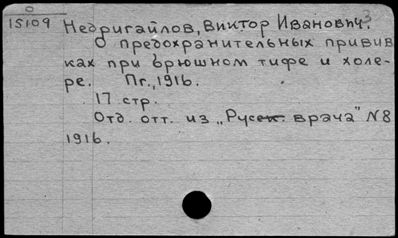 0
15109 Недригайлов, Виктор Иванович.³
О предохранительных привив
ках при брюшном тифе и холе-
ре. Пг., 1916.
17 стр.
Отд. отт. из „Русск. врача" N8
1916.